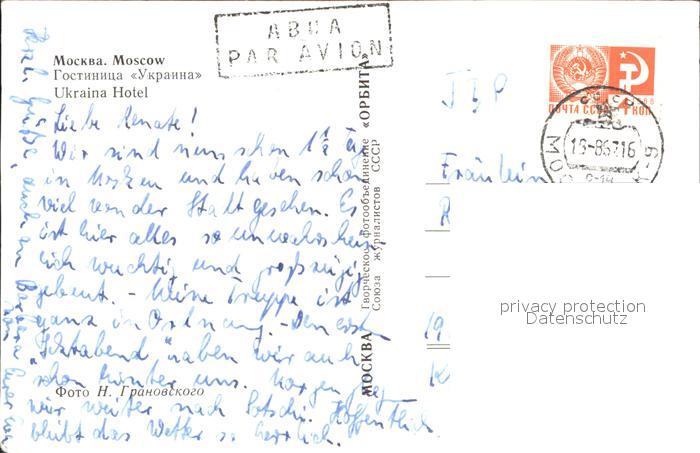 АВИА
PAR AVION
Москва. Moscow
Гостиница «Украина»
Ukraina Hotel
Liebe Renate!
Wir sind nun schon 1½ Tag
in Moskau und haben schon
viel von der Stadt gesehen. Es
ist hier alles so unwahrschein
lich wuchtig und großzügig
gebaut. - Meine Truppe ist
ganz in Ordnung. - Den erst
" haben wir auch
schon hinter uns. Morgen
wir weiter nach Sotschi. Hoffentlich
bleibt das Wetter so herrlich.
Herzl. Grüße, auch an
von
Фото Н. Грановского
МОСКВА
Творческое фотообъединение «ОРБИТА»
Союза журналистов СССР
ПОЧТА СССР 4 КОП
СССР
МО
Fräulein
R
19
privacy protection
Datenschutz